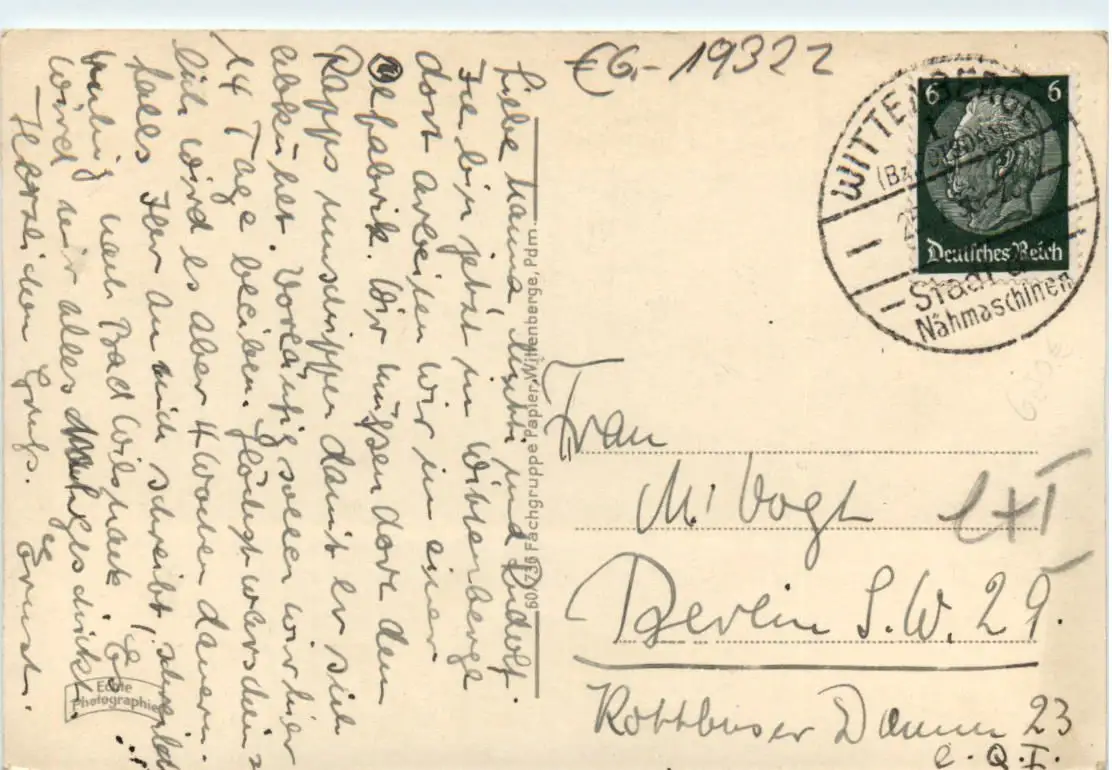 Liebe Mama, Mutti und Rudolf.
Ich bin jetzt in Wittenberge
dort arbeiten wir in einer
Oelfabrik. Wir müssen dort den
Rapps umschippen damit er sich
abkühlt. Vorläufig sollen wir hier
14 Tage bleiben.
lich wird es aber 4 Wochen dauern.
falls Ihr an mich schreibt, schreibt
ruhig nach Bad Wilsnack, Es
wird mir alles nachgeschickt.
Herzlichen Gruß. Ernst.
60/736 Fachgruppe Papier, Wittenberge, Pdm.
Echte
Photographie
€6,- 19322
WITTENBERGE
(Bz. Potsdam)
Stadt d.
Nähmaschinen
6 6
Deutsches Reich
Frau
M. Vogt
Berlin S.W. 29.
Kottbuser Damm 23